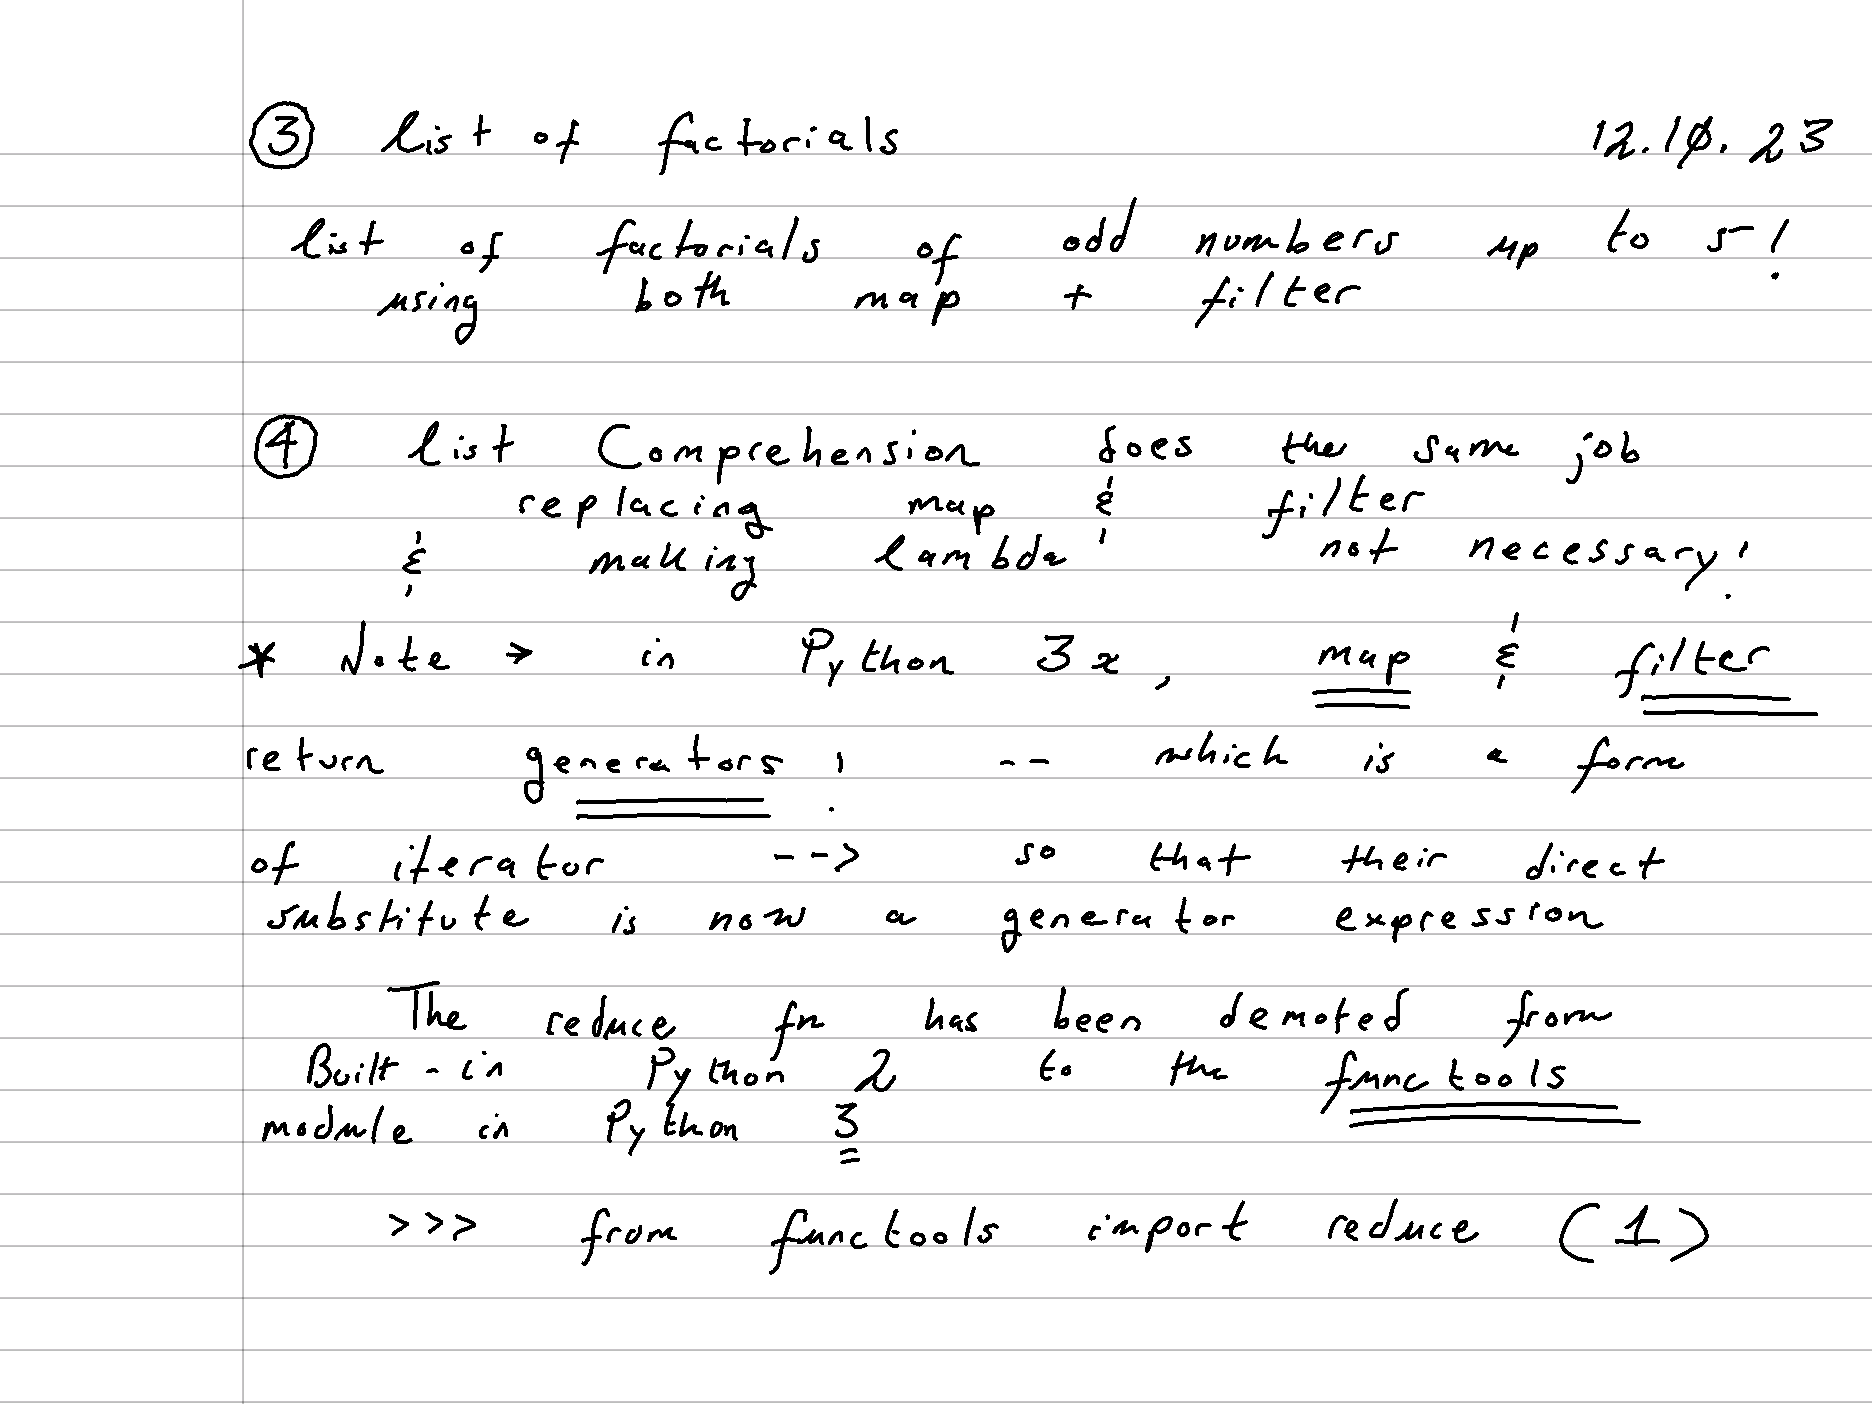 ③ list of factorials 12.10.23
list of factorials of odd numbers up to 5!
using both map + filter
④ list Comprehension does the same job
replacing map & filter
& making lambda not necessary!
* Note → in Python 3x, map & filter
return generators! -- which is a form
of iterator --> so that their direct
substitute is now a generator expression
The reduce fn has been demoted from
Built-in Python 2 to the functools
module in Python 3
>>> from functools import reduce (1)